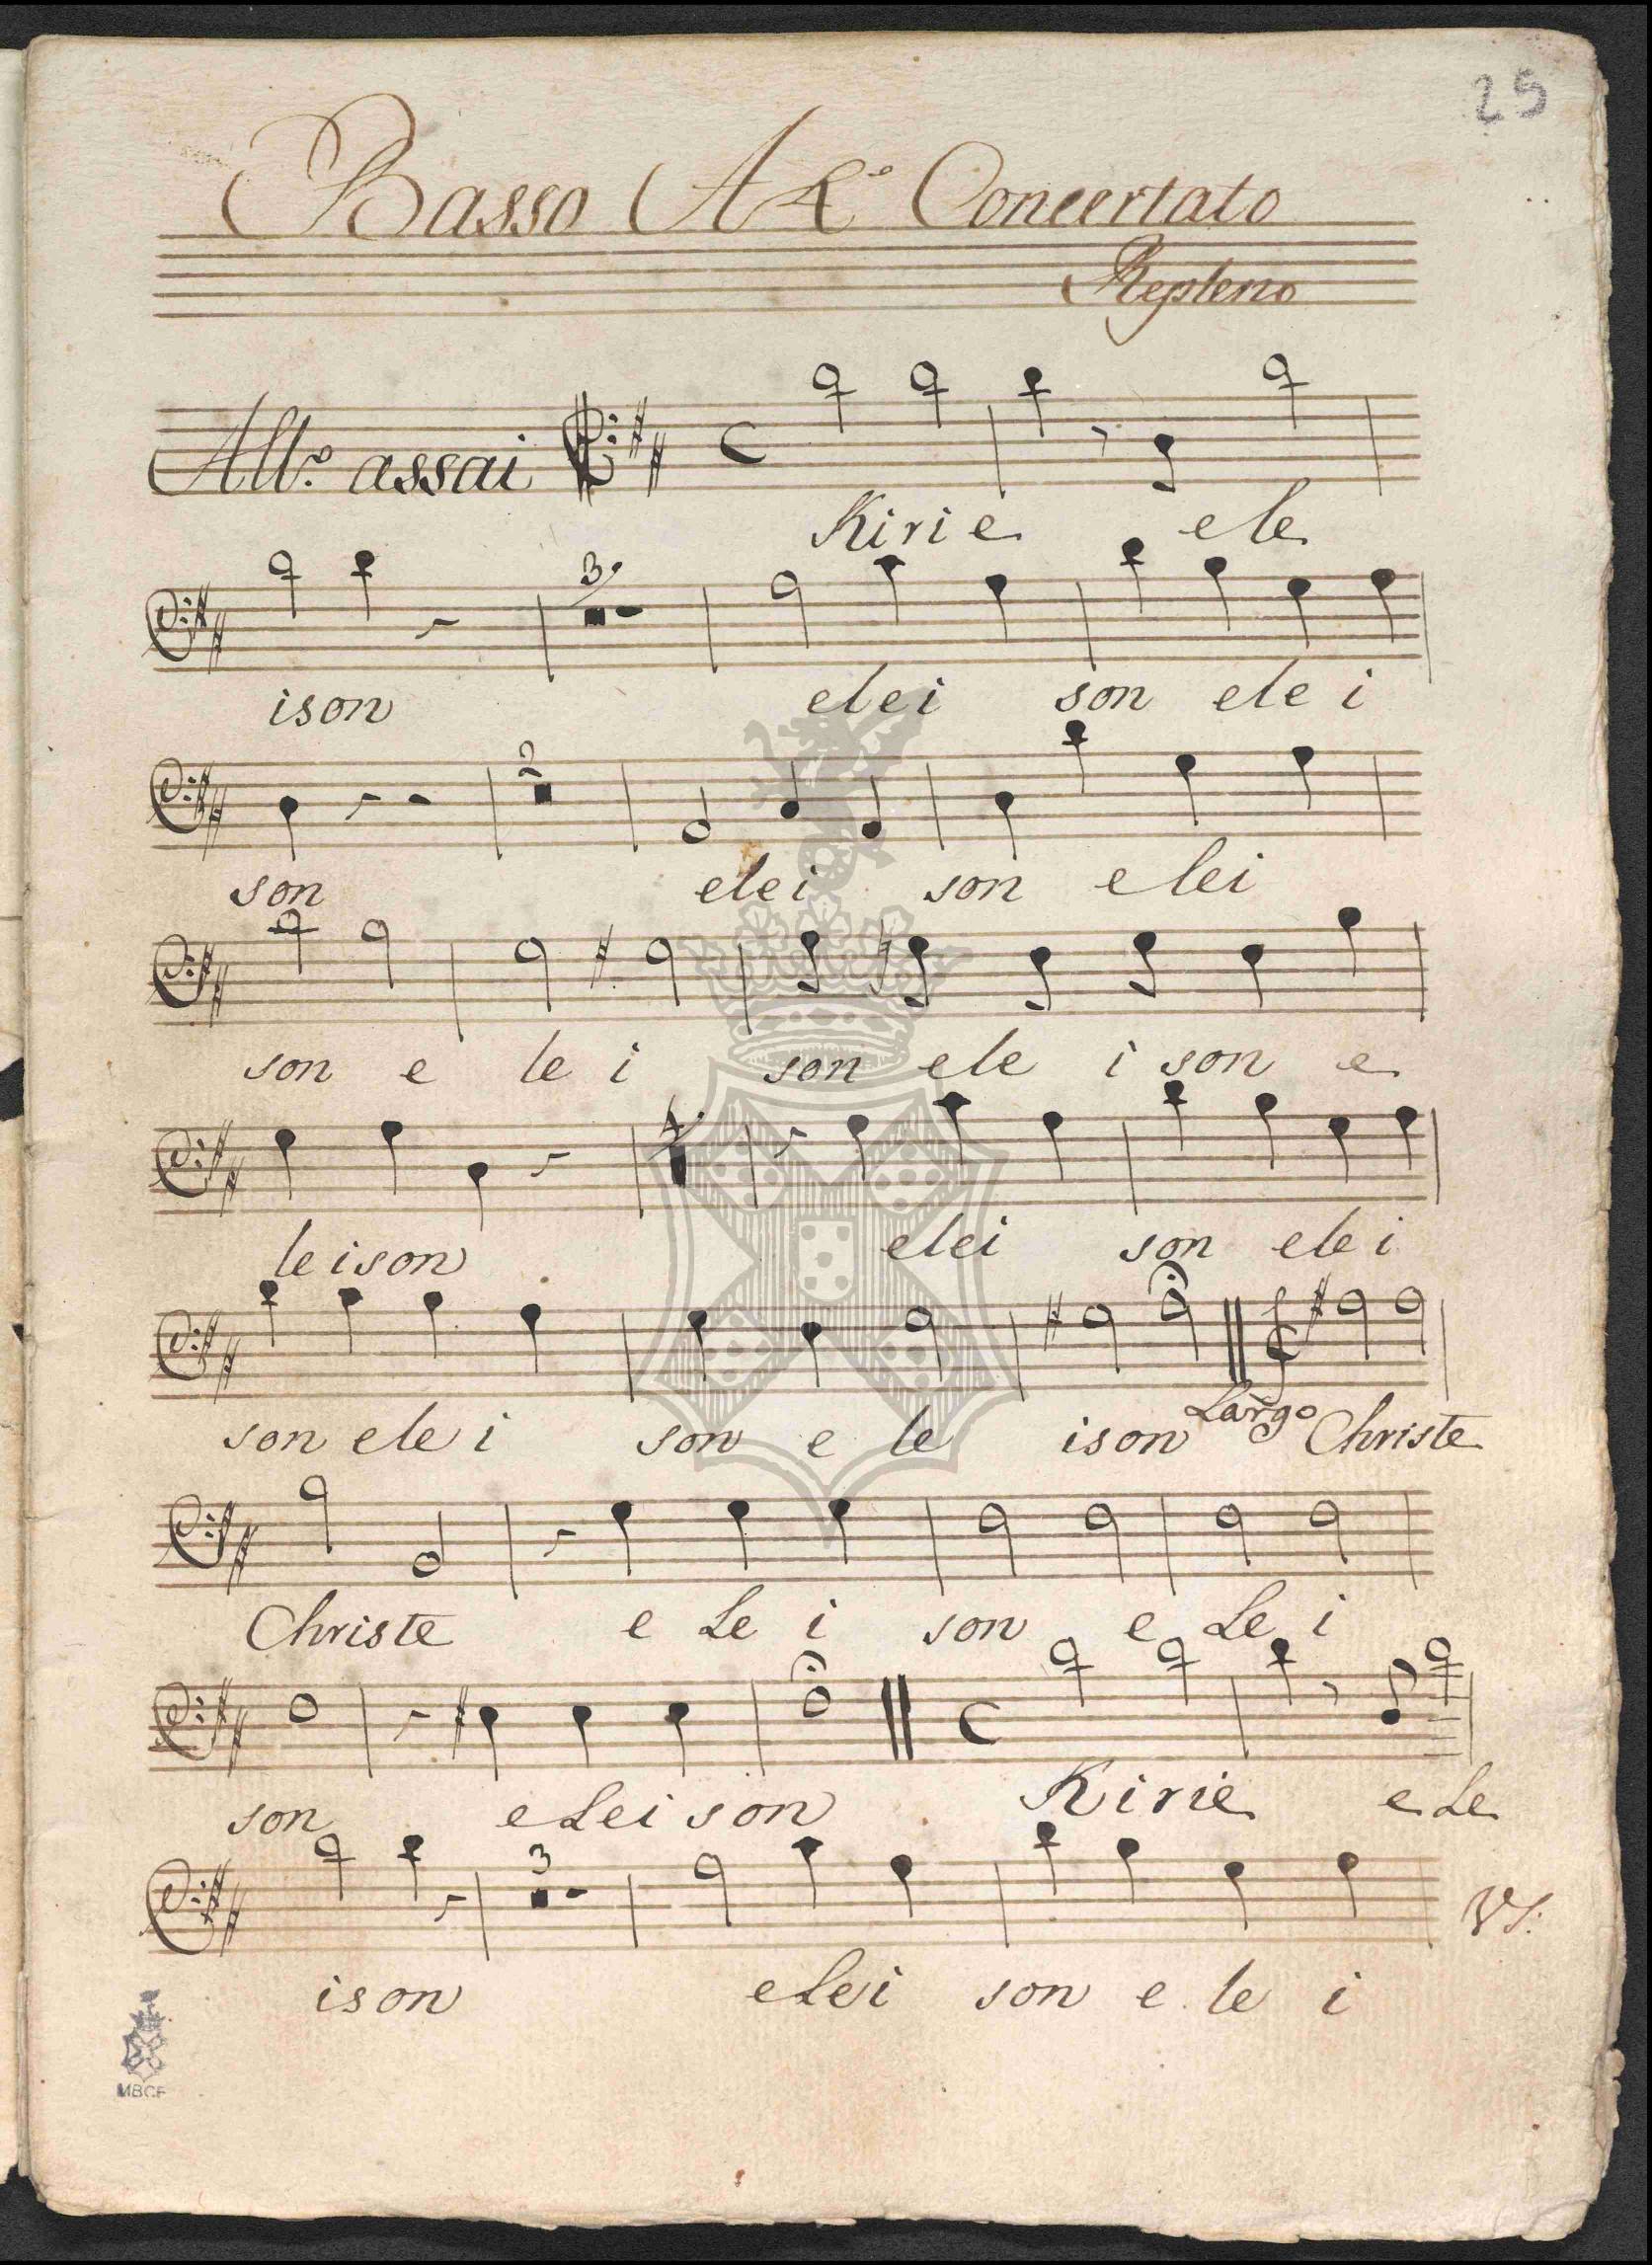 25
Basso A 4.º Concertato
Repleno
All.º assai
Kirie ele
3.
ison elei son ele i
2
son elei son e lei
son e le i son ele i son e
4.
le ison elei son ele i
son ele i son e le ison Largo Christe
Christe e Le i son e Le i
son e Lei son Kirie e Le
3
VS:
ison e Lei son e le i
MBCF